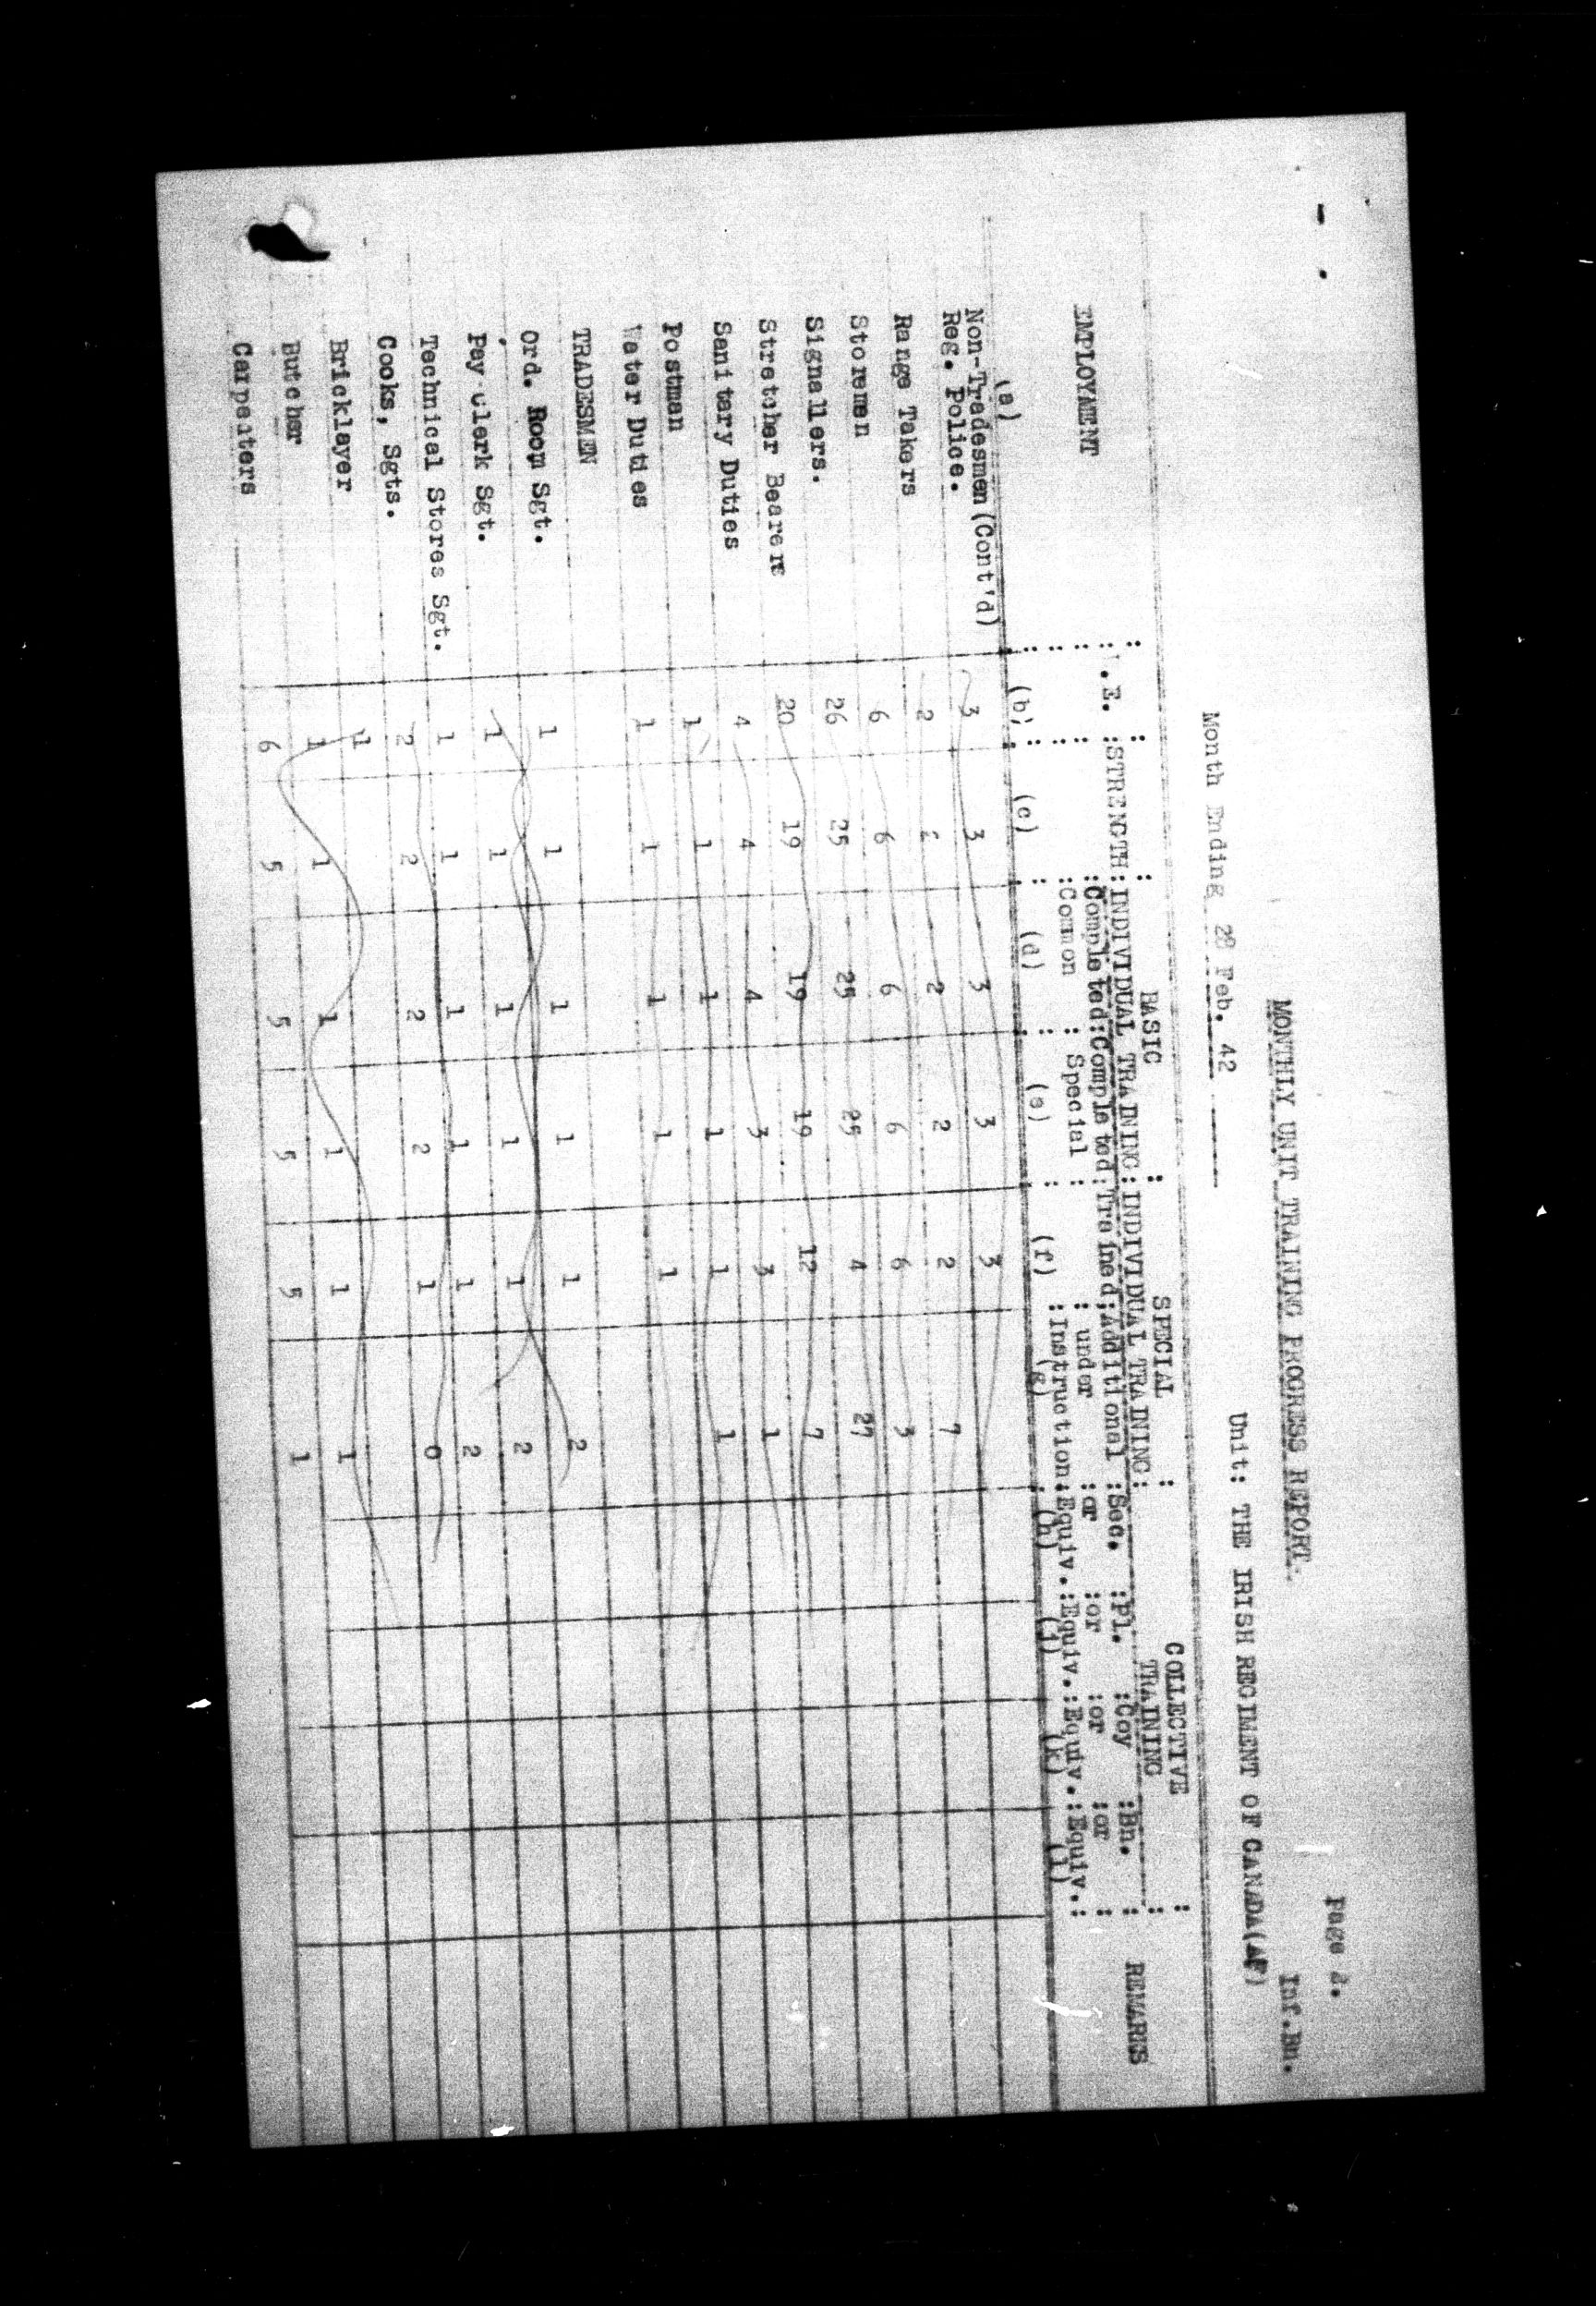 Page 2.
MONTHLY UNIT TRAINING PROGRESS REPORT.
Inf.Bn.
Month Ending 28 Feb. 42
Unit: THE IRISH REGIMENT OF CANADA(AF)
BASIC SPECIAL COLLECTIVE
EMPLOYMENT :.E. :STRENGTH: INDIVIDUAL TRAINING: INDIVIDUAL TRAINING: TRAINING REMARKS
:Completed:Completed:Trained:Additional :Sec. :Pl. :Coy :Bn. :
: under :or :or :or :or :
:Common : Special : :Instruction:Equiv.:Equiv.:Equiv.:Equiv.:
(a) (b) (c) (d) (e) (f) (g) (h) (j) (k) (l)
Non-Tradesmen(Cont'd)
Reg. Police. 3 3 3 3 3
Range Takers 2 2 2 2 7
Storemen 6 6 6 6 6 3
Signallers. 26 25 25 25 4 27
Stretcher Bearers 20 19 19 19 12 7
Sanitary Duties 4 4 4 3 3 1
Postman 1 1 1 1 1 1
Water Duties 1 1 1 1 1
TRADESMEN
Ord. Room Sgt. 1 1 1 1 1 2
Pay clerk Sgt. 1 1 1 1 1 2
Technical Stores Sgt. 1 1 1 1 1 2
Cooks, Sgts. 2 2 2 2 1 0
Bricklayer 1
Butcher 1 1 1 1 1 1
Carpenters 6 5 5 5 5 1